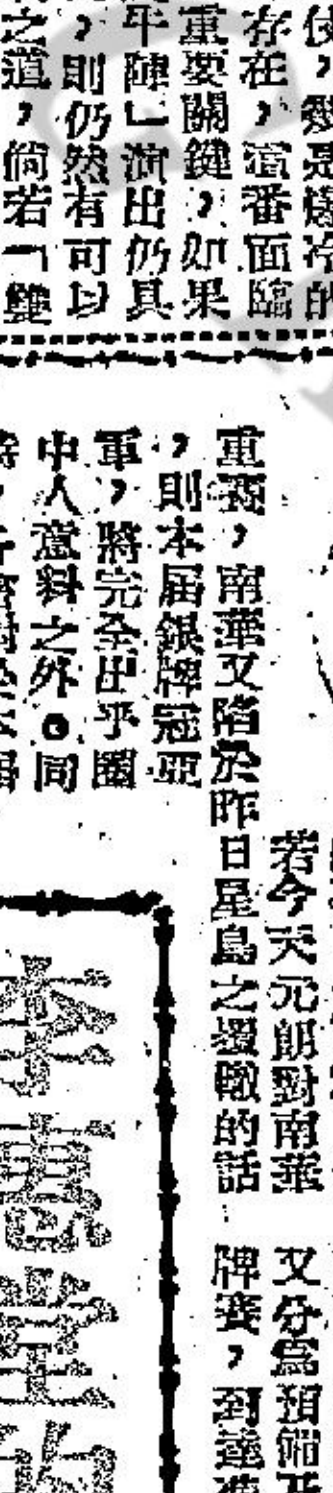 存在，這番面臨
重要關鍵，如果
平陣」演出仍具
，則仍然有可以
之道，倘若一雙
若今天元朗對南華
重賽，南華又陷於昨日星島之覆轍的話
，則本屆銀牌冠亞
軍，將完全出乎圈
中人意料之外。同
又分為預備
牌賽，到達
李惠堂的